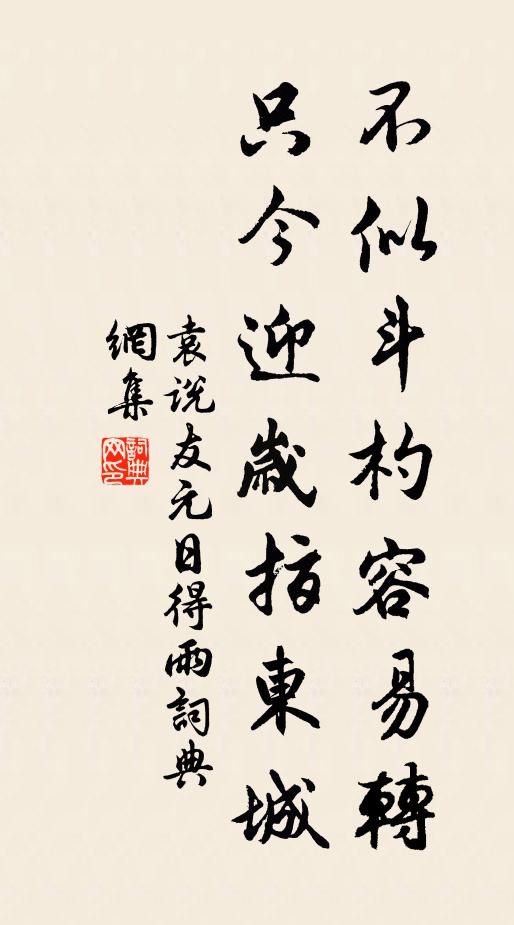 不似斗杓容易轉
只今迎歲指東城
袁說友元日得雨詞典
網集
詞典网印